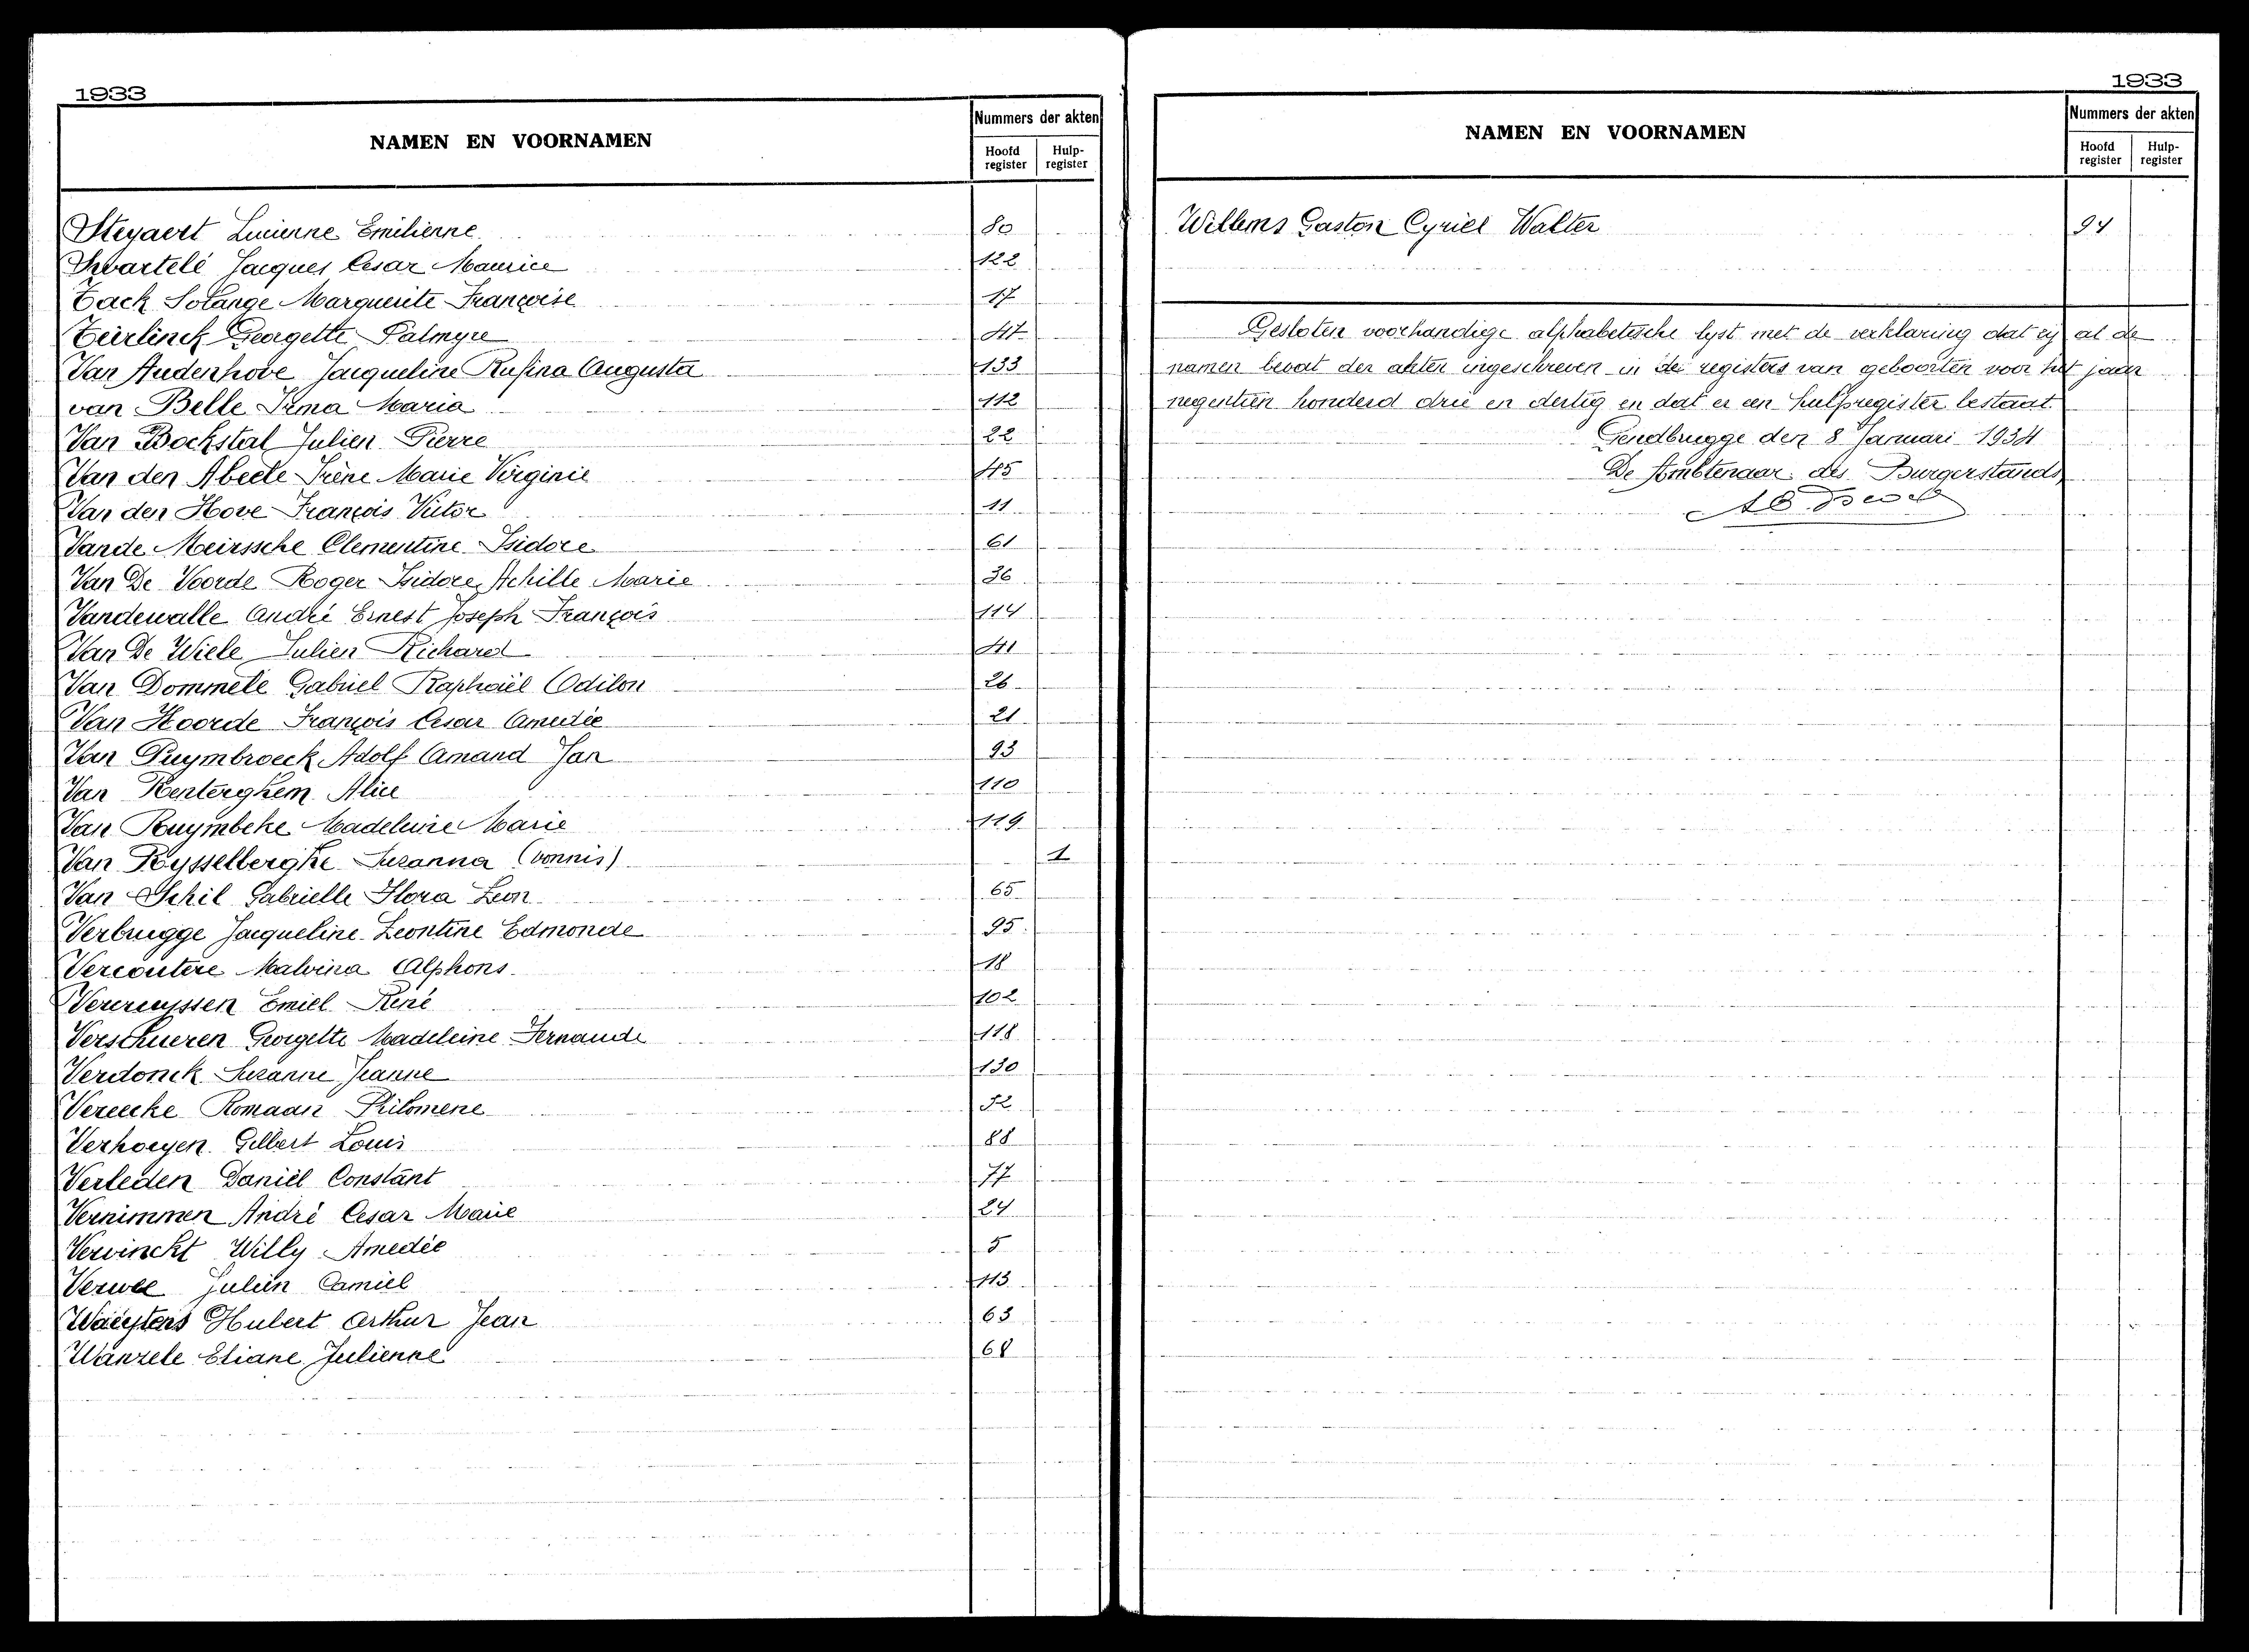 1933
NAMEN EN VOORNAMEN
Nummers der akten
Hoofd register
Hulp-register
Steyaert Lucienne Emilienne 80
Swartelé Jacques Cesar Maurice 122
Tack Solange Marguerite Françoise 17
Teirlinck Georgette Palmyre 47
Van Audenhove Jacqueline Rufina Augusta 133
van Belle Irma Maria 112
Van Bockstal Julien Pierre 22
Van den Abeele Irène Marie Virginie 45
Van den Hove François Victor 11
Vande Meirssche Clementine Isidore 61
Van De Voorde Roger Isidore Achille Marie 36
Vandewalle André Ernest Joseph François 114
Van De Wiele Julien Richard 41
Van Dommele Gabriel Raphaël Odilon 26
Van Hoorde François Cesar Amedée 21
Van Puymbroeck Adolf Amand Jan 93
Van Renterghem Alice 110
Van Ruymbeke Madeleine Marie 119
Van Rysselberghe Suzanna (vonnis) 1
Van Schil Gabrielle Flora Leon 65
Verbrugge Jacqueline Leontine Edmonde 95
Vercoutere Malvina Alphons 18
Vercruyssen Emiel René 102
Verschueren Georgette Madeleine Fernande 118
Verdonck Suzanne Jeanne 130
Vereecke Romaan Philomene 52
Verhoeyen Gilbert Louis 88
Verleden Daniël Constant 77
Vernimmen André Cesar Marie 24
Vervinckt Willy Amedée 5
Verwee Julien Camiel 113
Hubert Arthur Jean 63
Wanzele Eliane Julienne 68
1933
NAMEN EN VOORNAMEN
Nummers der akten
Hoofd register
Hulp-register
Willems Gaston Cyriel Walter 94
Gesloten voorhandige alphabetische lyst met de verklaring dat zij al de
namen bevat der akten ingeschreven in de registers van geboorten voor het jaar
negentien honderd drie en dertig en dat er een hulpregister bestaat.
Gendbrugge den 8 Januari 1934
De Ambtenaar des Burgerstands